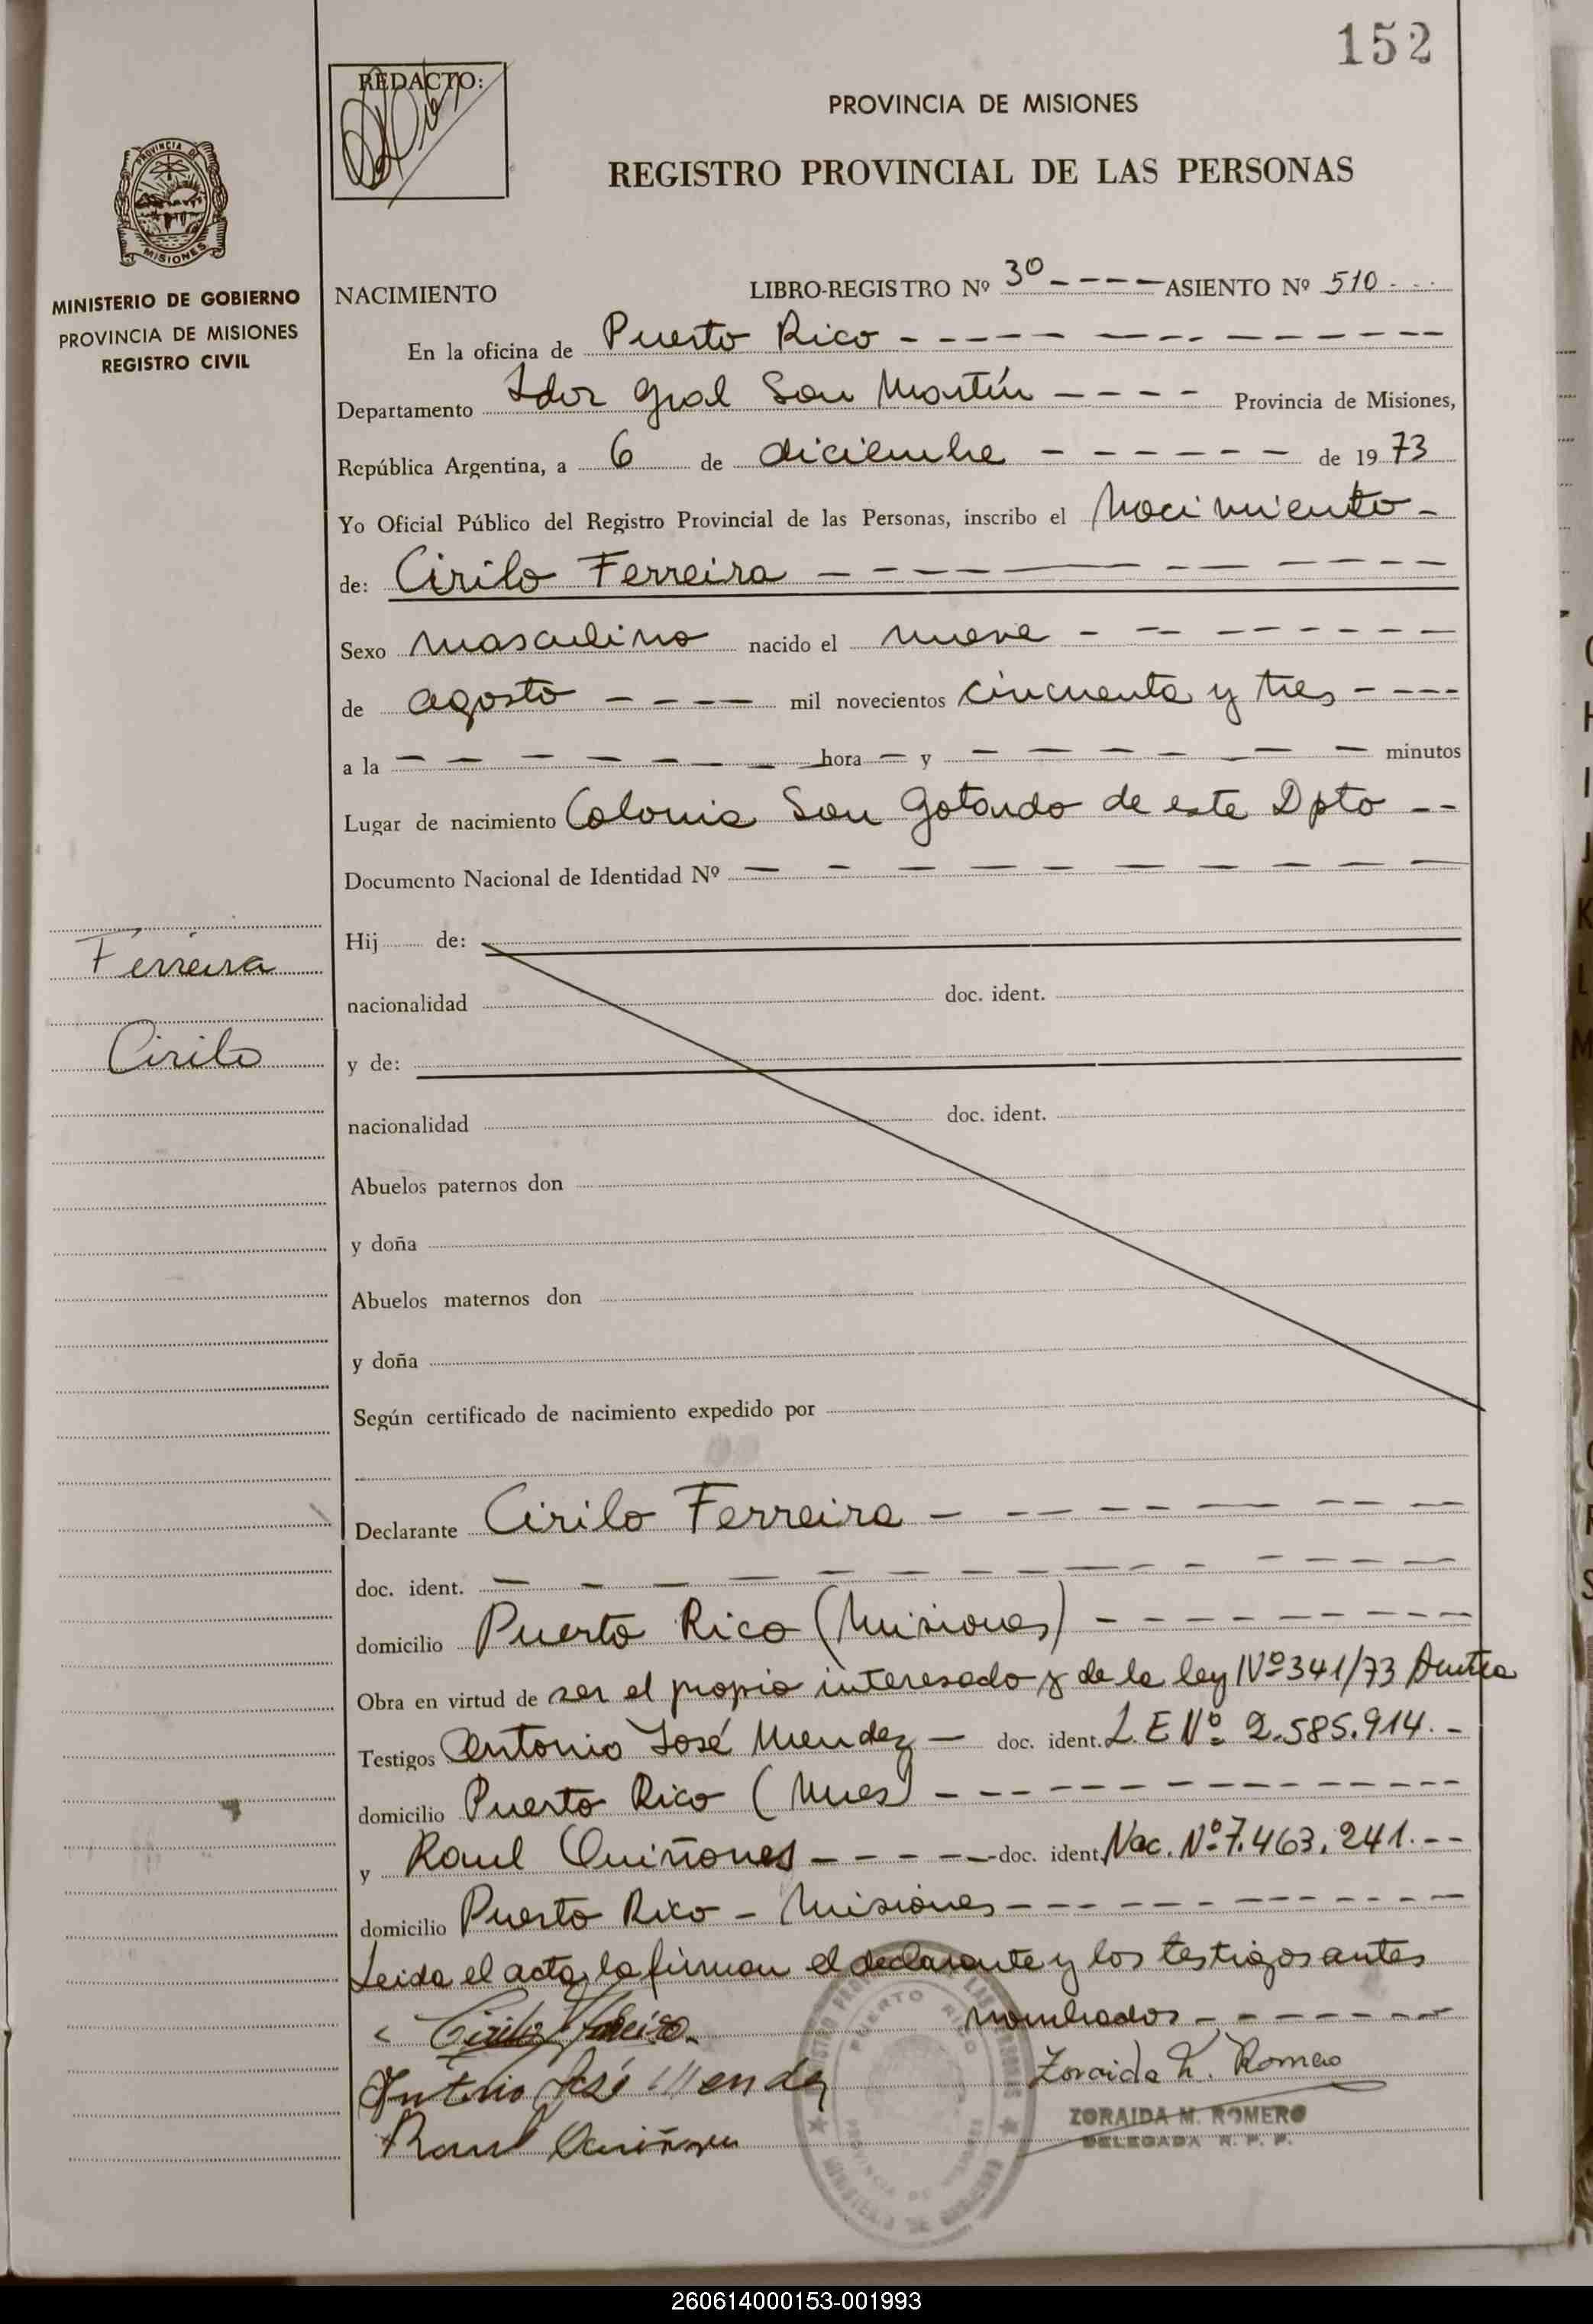 152
REDACTO:
PROVINCIA DE MISIONES
REGISTRO PROVINCIAL DE LAS PERSONAS
PROVINCIA DE
MISIONES
MINISTERIO DE GOBIERNO
PROVINCIA DE MISIONES
REGISTRO CIVIL
NACIMIENTO LIBRO-REGISTRO Nº 3º - - - - ASIENTO Nº 510 - - -
En la oficina de Puerto Rico - - - - - - - - - - - - -
Departamento Ldor Gral San Martín - - - - Provincia de Misiones,
República Argentina, a 6 de diciembre - - - - - - de 1973
Yo Oficial Público del Registro Provincial de las Personas, inscribo el Nacimiento -
de: Cirilo Ferreira - - - - - - - - - - - -
Sexo masculino nacido el nueve - - - - - - - -
de agosto - - - - mil novecientos cincuenta y tres - - - -
a la - - - - - - - hora - y - - - - - - - minutos
Lugar de nacimiento Colonia San Gotardo de este Dpto - -
Documento Nacional de Identidad Nº - - - - - - - - -
Hij de:
nacionalidad doc. ident.
y de:
nacionalidad doc. ident.
Abuelos paternos don
y doña
Abuelos maternos don
y doña
Según certificado de nacimiento expedido por
Ferreira
Cirilo
Declarante Cirilo Ferreira - - - - - - - - -
doc. ident. - - - - - - - - - - - - - -
domicilio Puerto Rico (Misiones) - - - - - - - - -
Obra en virtud de ser el propio interesado y de la ley Nº 341/73
Testigos Antonio José Mendez - doc. ident. L E Nº 2.585.914. -
domicilio Puerto Rico (Mnes) - - - - - - - - - - - -
y Raul Quiñones - - - - - doc. ident. Nac. Nº 7.463.241. - -
domicilio Puerto Rico - Misiones - - - - - - - - - -
Leida el acta, la firman el declarante y los testigos antes
nombrados - - - - - -
Cirilo Ferreira
Antonio José Mendez
Raul Quiñones
Zoraida M. Romero
ZORAIDA M. ROMERO
DELEGADA R. P. P.
PUERTO RICO
PROVINCIA DE MISIONES
MINISTERIO DE GOBIERNO
260614000153-001993